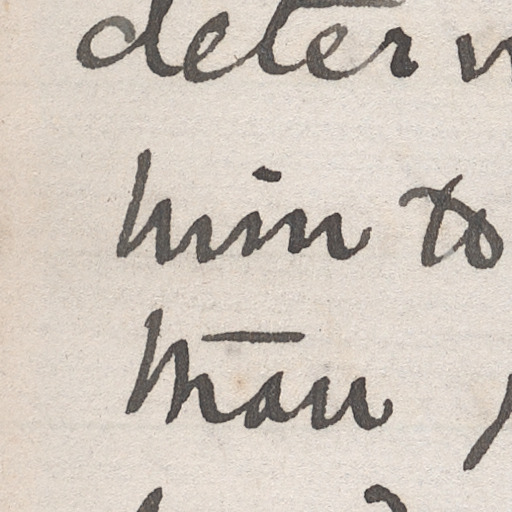 deter
him to
than